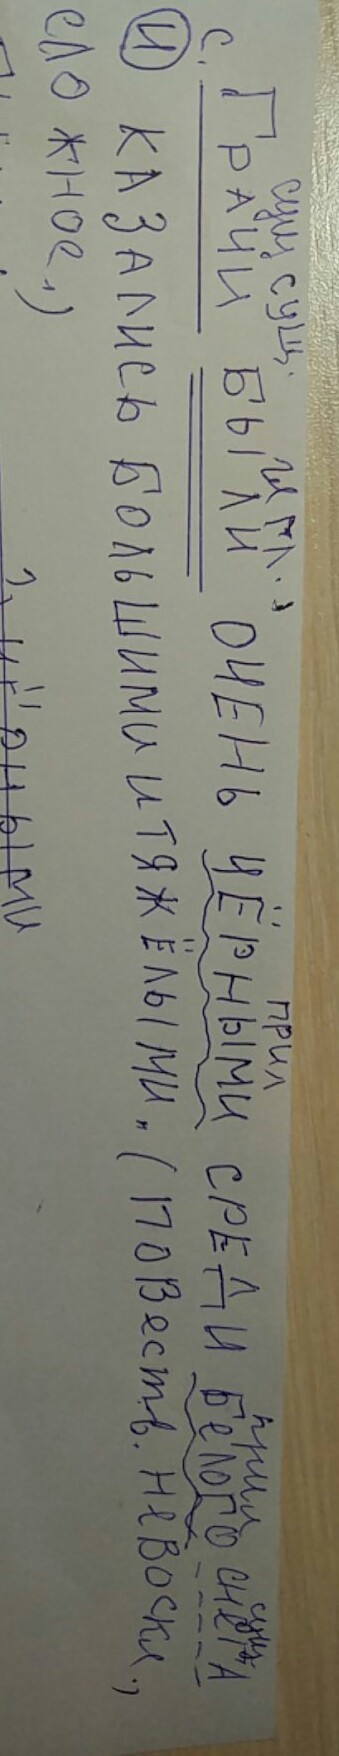 сущ. сущ. гл. прил прил сущ
С. ГРАЧИ БЫЛИ ОЧЕНЬ ЧЁРНЫМИ СРЕДИ БЕЛОГО СНЕГА
И КАЗАЛИСЬ БОЛЬШИМИ И ТЯЖЁЛЫМИ. (ПОВеств. НеВоскл.,
СЛОЖНОе.)
ЧЁРНЫМИ